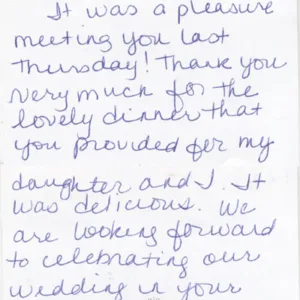 It was a pleasure
meeting you last
Thursday! Thank you
very much for the
lovely dinner that
you provided for my
daughter and I. It
was delicious. We
are looking forward
to celebrating our
wedding in your